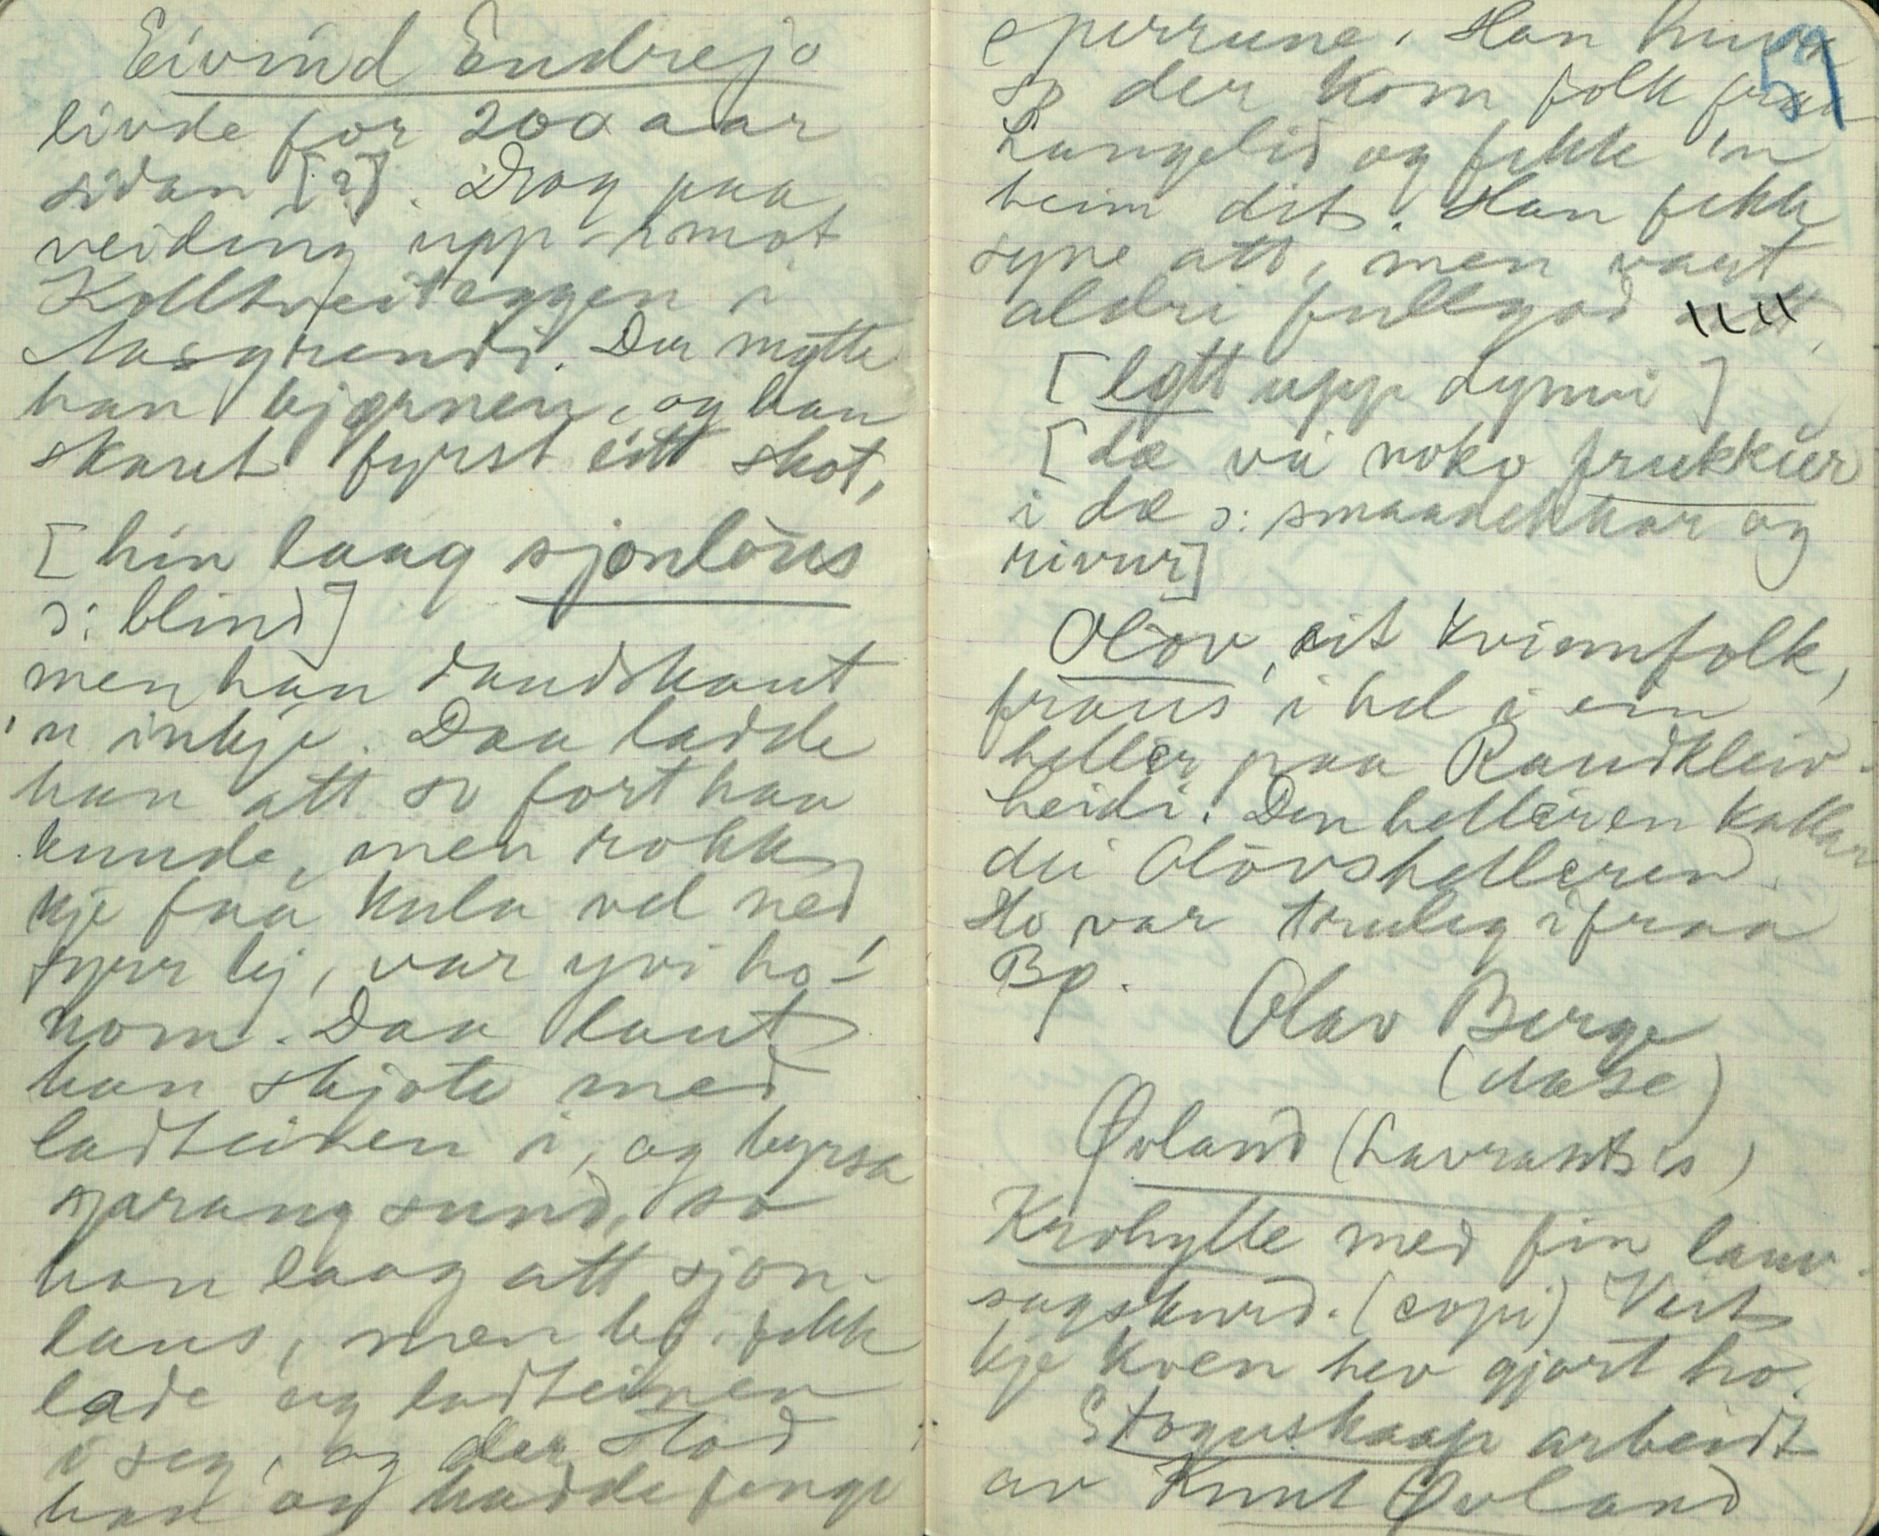 Eivind Endrejo
livde for 200 aar
sidan [?]. Drog paa
veiding upp-imot
Kylltveiteggen i
Aasgrendi. Der møtte
han bjørnen, og han
skaut fyrst eitt skot,
[hin laag sjonlòus
ɔ: blind]
men han daudskaut
'n inkje. Daa ladde
han att so fort han
kunde, men rokk
kje faa kula vel ned
fyrr bj, var yvi ho-
nom. Daa laut
han skjote med
ladteinen i, og byrsa
sprang sund, so
han laag att sjon-
laus, men bj. fekk
lade og ladteinen
i seg, og der stod
han og hadde fenge
sperrune. Han
so der kom folk fraa
Langeid og fekk 'n
heim dit. Han fekk
syne att, men vart
aldri fullgod
[lott upp dynni]
[dæ vā noko frukkur
i dæ ɔ: smaadekkar og
rivur]
Olòv, eit kvinnfolk,
fraus i hel i ein
heller paa Raudkleiv-
heidi. Den helleren kallar
dei Olòvshelleren.
Ho var truleg ifraa
By.
Olav Berge
(dase)
Øvland (Lavrants's)
Krohylle med fin lauv-
sagskurd. (copi) Veit
kje kven hev gjort ho.
Stoguskaap arbeidt
av Knut Øvland
57